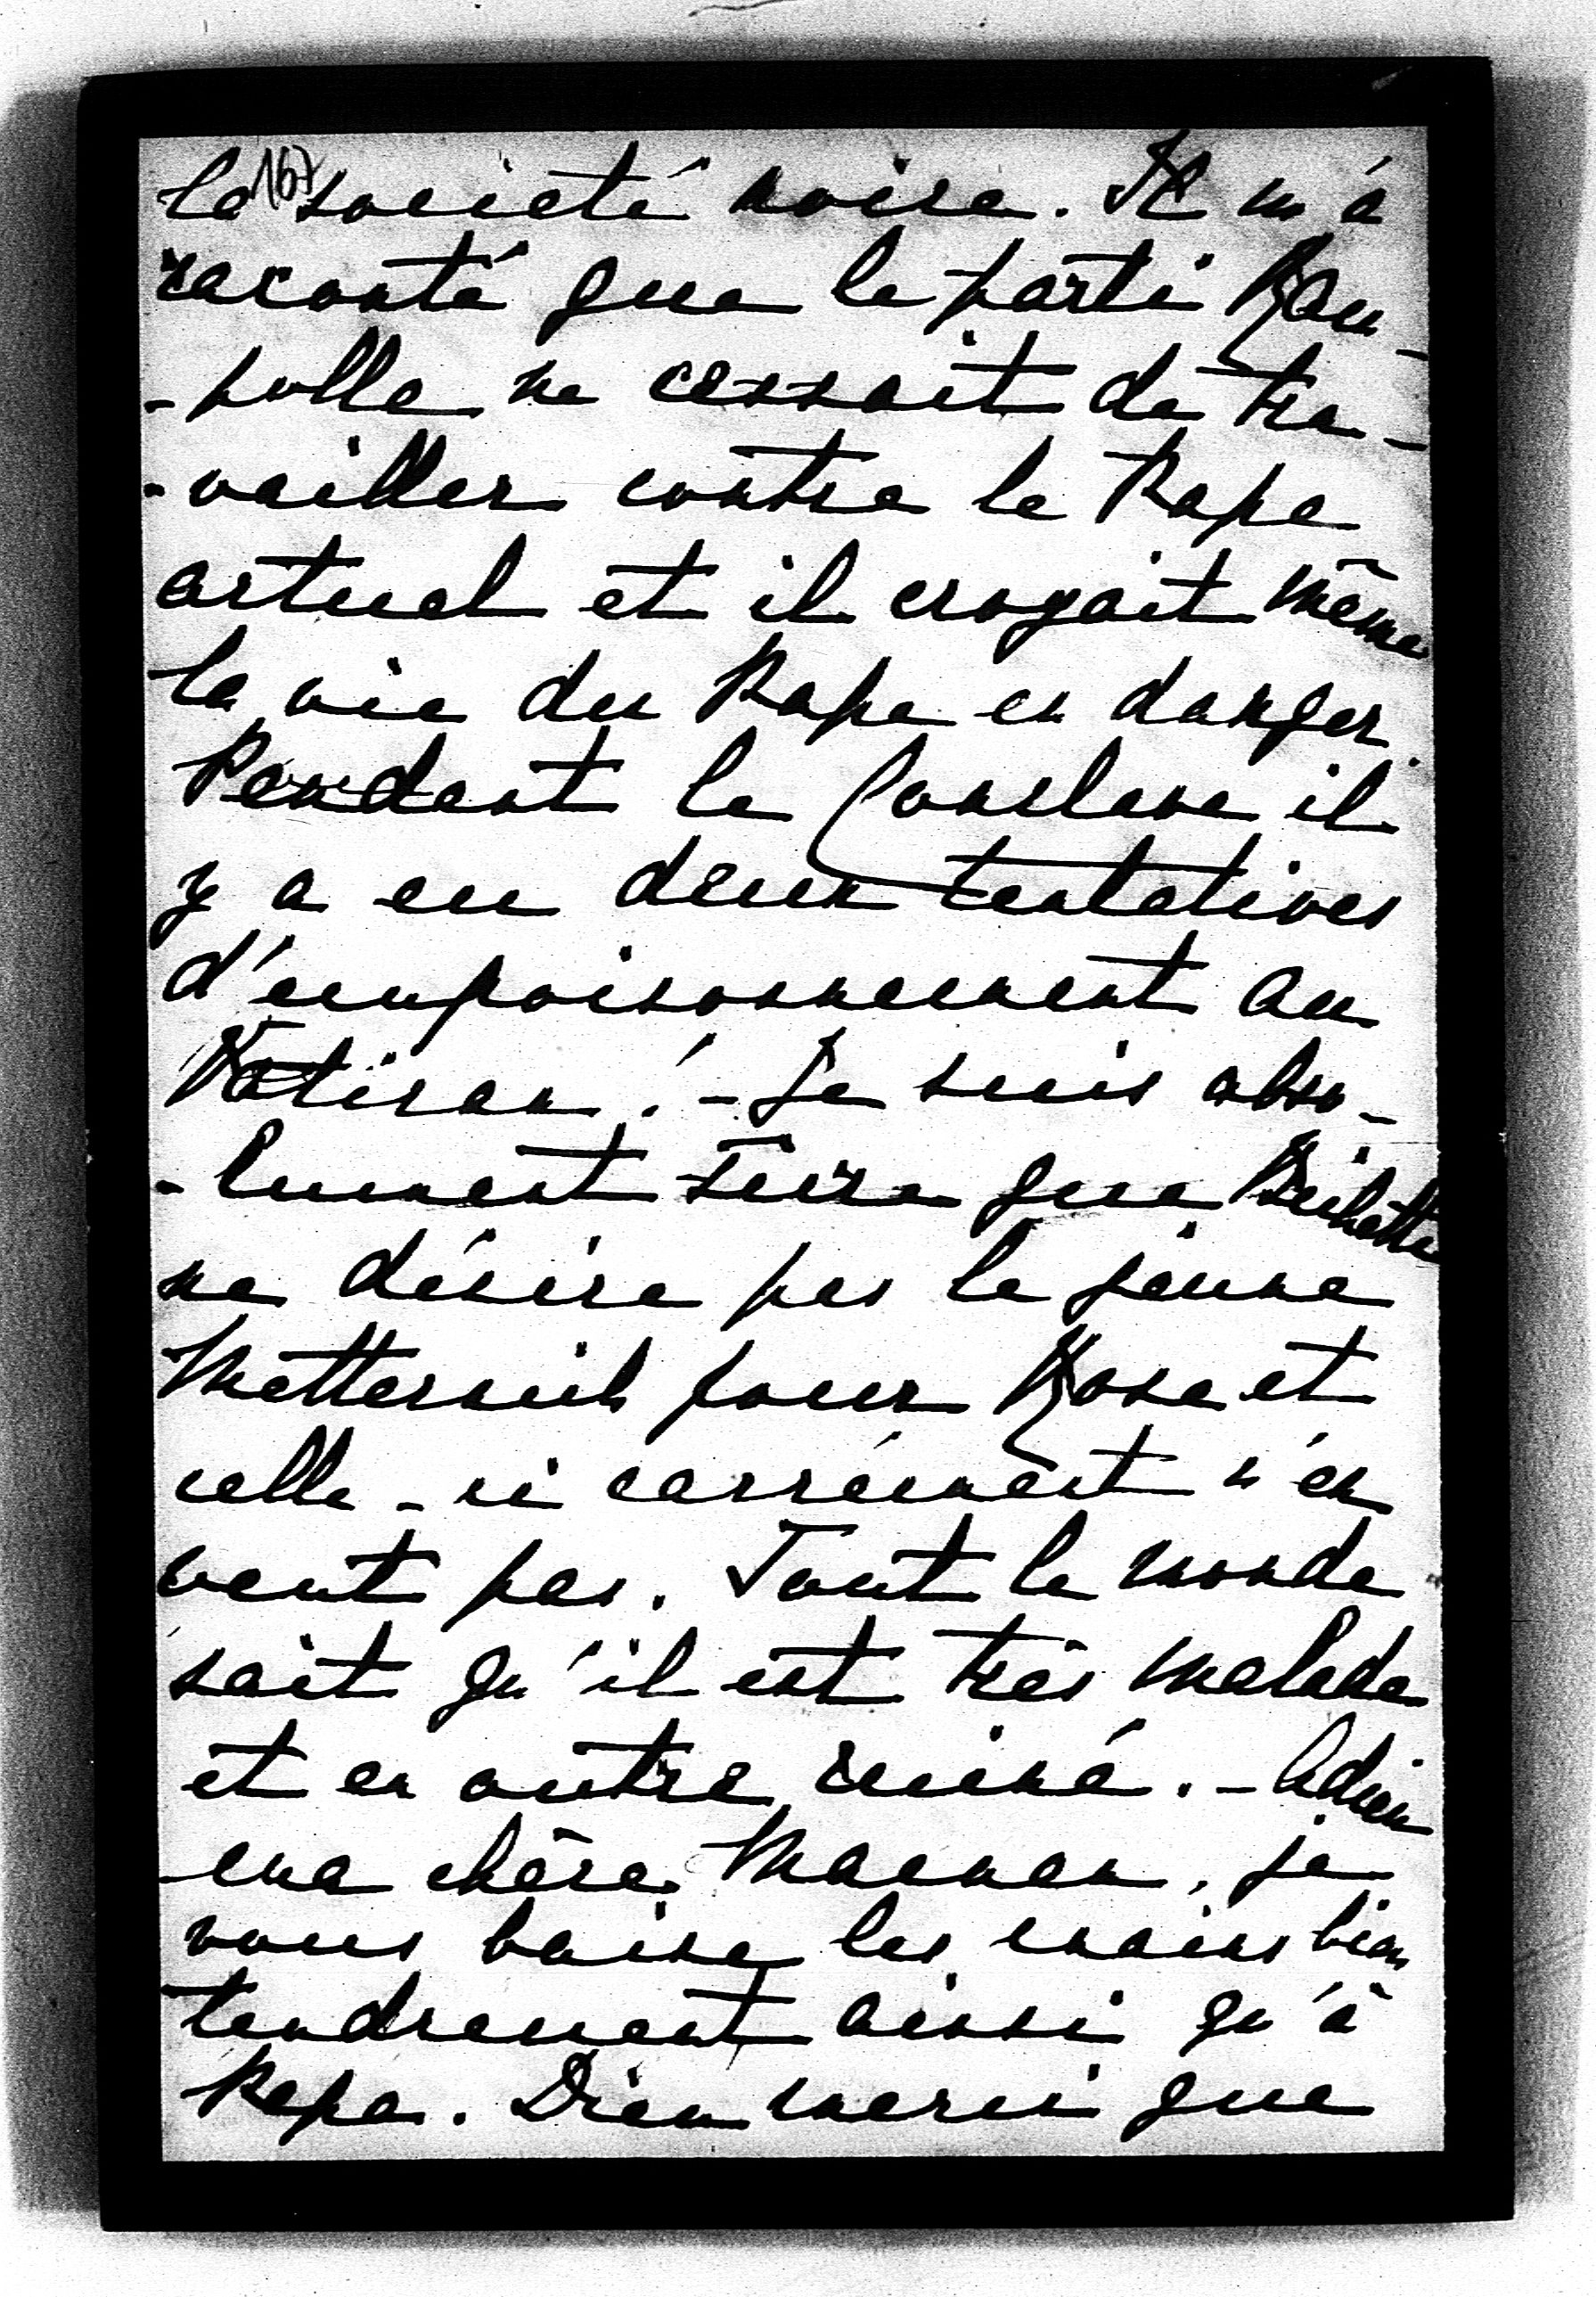 167
la societé noire. Il m'a
raconté que le parti Ram-
-polla ne cessait de tra-
-vailler contre le Pape
actuel et il croyait même
la vie du Pape en danger.
Pendant le Conclave il
y a eu deux tentatives
d'empoisonnement au
Vatican! - Je suis abso-
-lument sûre que
ne désire pas le jeune
Metternich pour Rosa et
celle-ci carrément n'en
veut pas. Tout le monde
sait qu'il est très malade
et en outre ruiné. - Adieu
ma chère Maman, je
vous baise les mains bien
tendrement ainsi qu'à
Papa. Dieu merci que